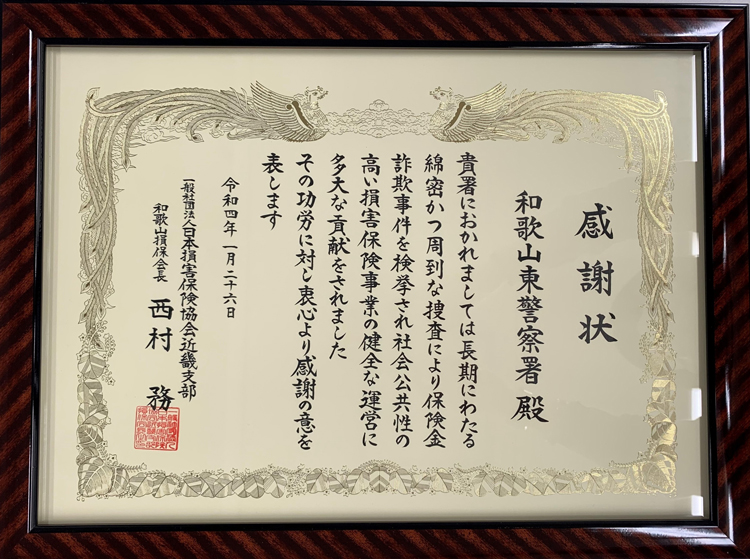 感謝状
和歌山東警察署 殿
貴署におかれましては長期にわたる
綿密かつ周到な捜査により保険金
詐欺事件を検挙され社会公共性の
高い損害保険事業の健全な運営に
多大な貢献をされました
その功労に対し衷心より感謝の意を
表します
令和四年一月二十六日
一般社団法人日本損害保険協会近畿支部
和歌山損保会長 西村 務